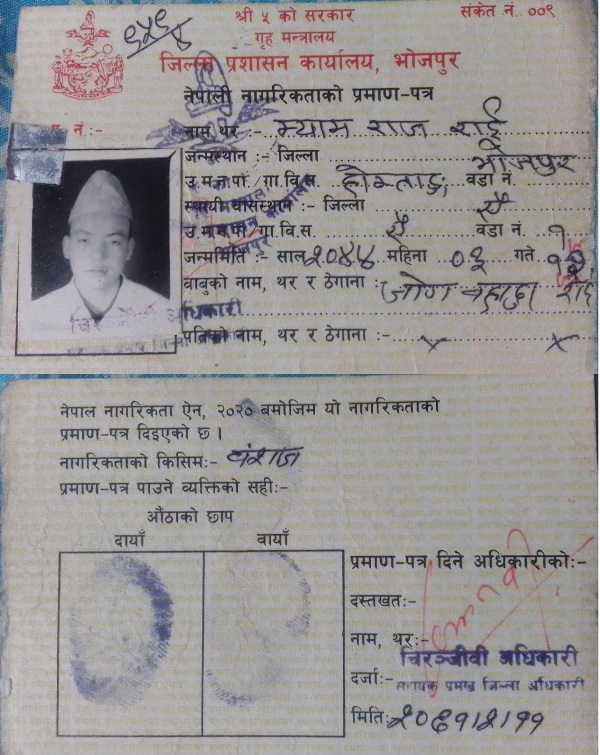 श्री ५ को सरकार
संकेत नं. ००१
गृह मन्त्रालय
जिल्ला प्रशासन कार्यालय, भोजपुर
नेपाली नागरिकताको प्रमाण-पत्र
नं.:-
नाम थर :- म्याम राज राई
जन्मस्थान :- जिल्ला भोजपुर
उ.म.न.पा./गा.वि.स. वडा नं.
स्थायी वासस्थान :- जिल्ला ऐ
उ.म.न.पा./गा.वि.स ऐ वडा नं. १
जन्ममिति :- साल २०४४ महिना ०३ गते
बाबुको नाम, थर र ठेगाना : राई
पतिको नाम, थर र ठेगाना :- x x
नेपाल नागरिकता ऐन, २०२० बमोजिम यो नागरिकताको
प्रमाण-पत्र दिइएको छ ।
नागरिकताको किसिम:- वंशज
प्रमाण-पत्र पाउने व्यक्तिको सही:-
औंठाको छाप
दायाँ बायाँ
प्रमाण-पत्र दिने अधिकारीको:-
दस्तखत:-
नाम, थर:-
चिरञ्जीवी अधिकारी
दर्जा:- सहायक प्रमुख जिल्ला अधिकारी
मिति: २०६१।२।११